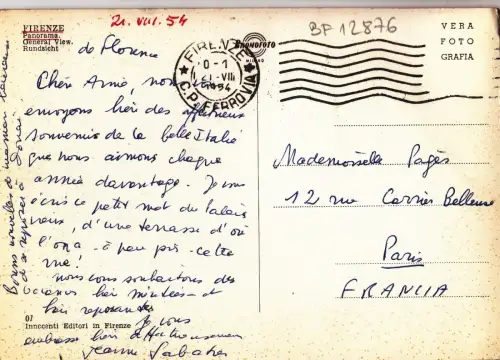 FIRENZE
Panorama.
General View.
Rundsicht
21. VIII. 54
BF 12876
VERA
FOTO
GRAFIA
BROMOFOTO
MILANO
FIRENZE
0-1
21·VIII
1954
C.P. FERROVIA
de Florence
Chère Amie, nous vous
envoyons bien des affectueux
souvenirs de la belle Italie
que nous aimons chaque
année davantage. Je vous
écris ce petit mot du Palais
vieux, d'une terrasse d'où
l'on a à peu près cette
vue!
nous vous souhaitons des
vacances bien méritées et
bien reposantes. Je vous
embrasse bien affectueusement
Jeanne
Bonnes nouvelles de maman
se repose à
Mademoiselle Pagès
12 rue Carrier Belleuse
Paris
FRANCIA
07
Innocenti Editori in Firenze